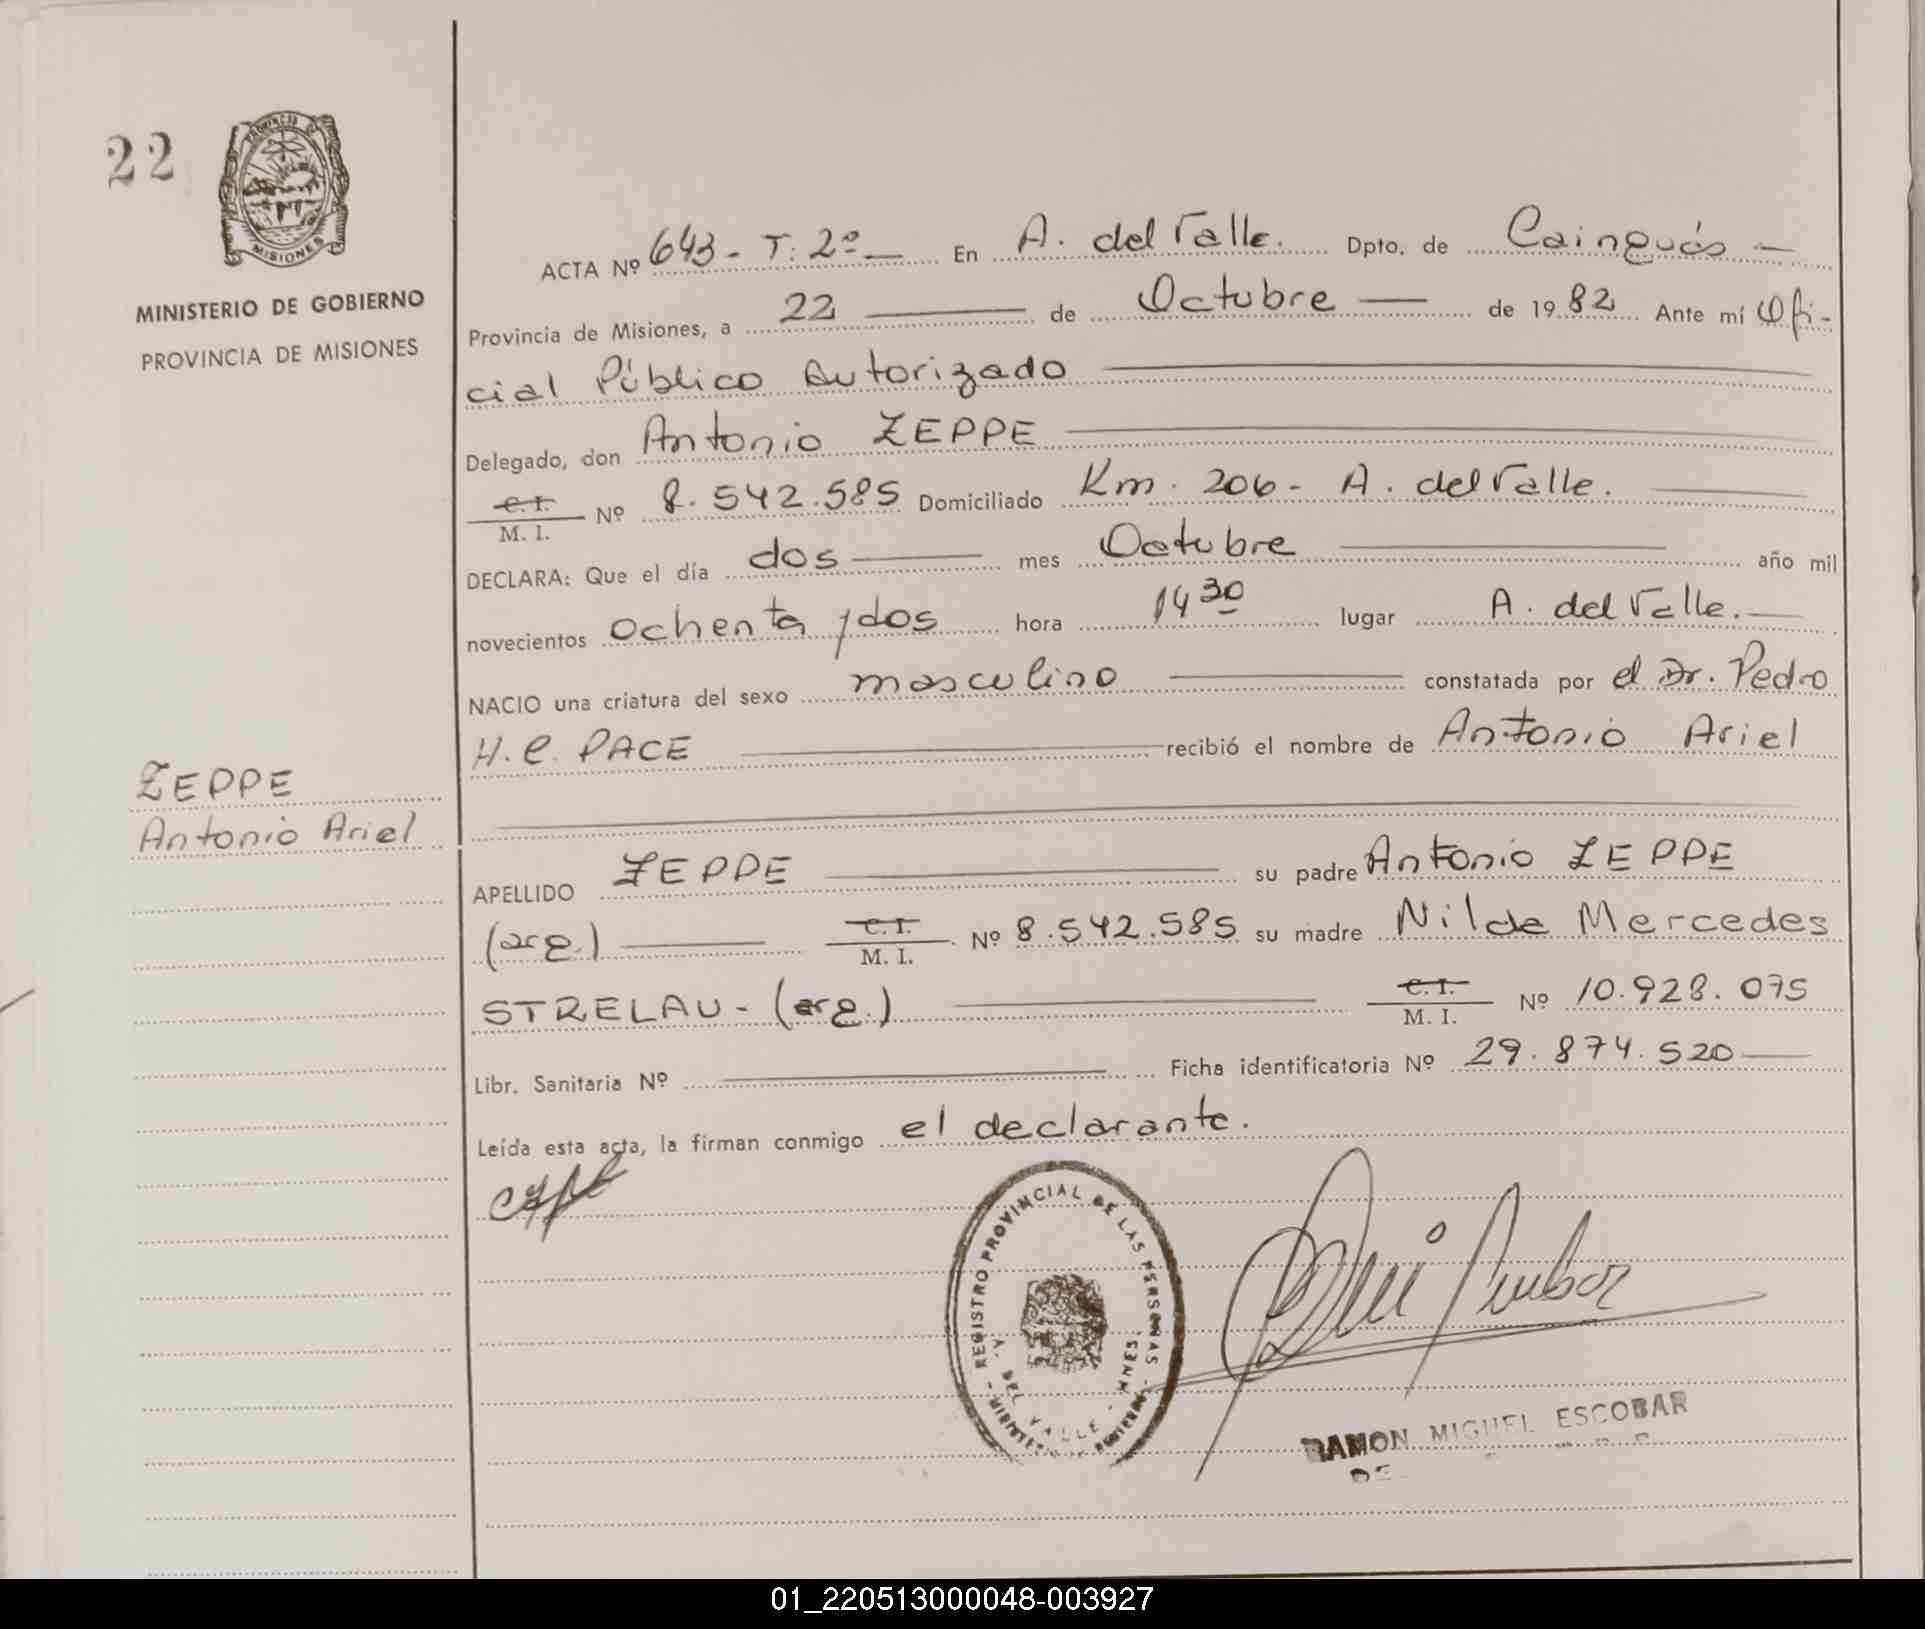 22
PROVINCIA DE
MISIONES
MINISTERIO DE GOBIERNO
PROVINCIA DE MISIONES
ACTA Nº 643 - T: 2º — En A. del Valle. Dpto. de Cainguás —
Provincia de Misiones, a 22 — de Octubre — de 1982 Ante mí Ofi-
cial Público Autorizado
Delegado, don Antonio ZEPPE
C. I.
M. I. Nº 8.542.585 Domiciliado Km. 206 - A. del Valle.
DECLARA: Que el día dos mes Octubre año mil
novecientos ochenta y dos hora 14 30 lugar A. del Valle.
NACIO una criatura del sexo masculino constatada por el Dr. Pedro
H. C. PACE recibió el nombre de Antonio Ariel
ZEPPE
Antonio Ariel
APELLIDO ZEPPE su padre Antonio ZEPPE
(arg.) C. I.
M. I. Nº 8.542.585 su madre Nilda Mercedes
STRELAU - (arg.) C. I.
M. I. Nº 10.928.075
Libr. Sanitaria Nº Ficha identificatoria Nº 29.874.520
Leída esta acta, la firman conmigo el declarante.
- REGISTRO PROVINCIAL DE LAS PERSONAS -
A. DEL VALLE - MNES.
RAMON MIGUEL ESCOBAR
01_220513000048-003927